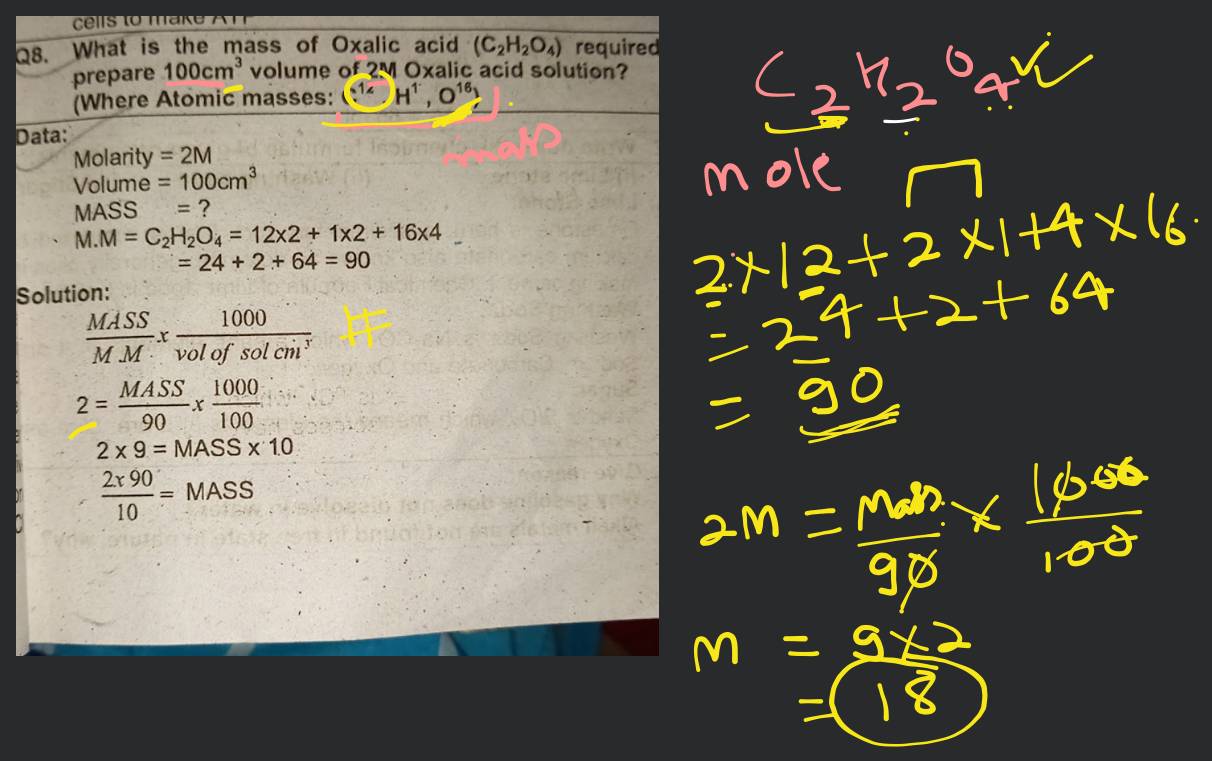 cells to make ATP
Q8. What is the mass of Oxalic acid (C₂H₂O₄) required
prepare 100cm³ volume of 2M Oxalic acid solution?
(Where Atomic masses: C¹², H¹, O¹⁶).
mass
Data:
Molarity = 2M
Volume = 100cm³
MASS = ?
M.M = C₂H₂O₄ = 12x2 + 1x2 + 16x4
= 24 + 2 + 64 = 90
Solution:
MASS/M.M x 1000/vol of sol cm³ #
2 = MASS/90 x 1000/100
2 x 9 = MASS x 10
2x90/10 = MASS
C₂H₂O₄
mole
2×12+2×1+4×16.
= 24+2+64
= 90
2M = Mass/90 × 1000/100
M = 9×2
= 18